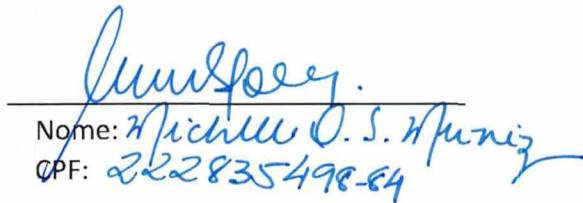 Nome: Michelle O. S. Muniz
CPF: 222835498-84